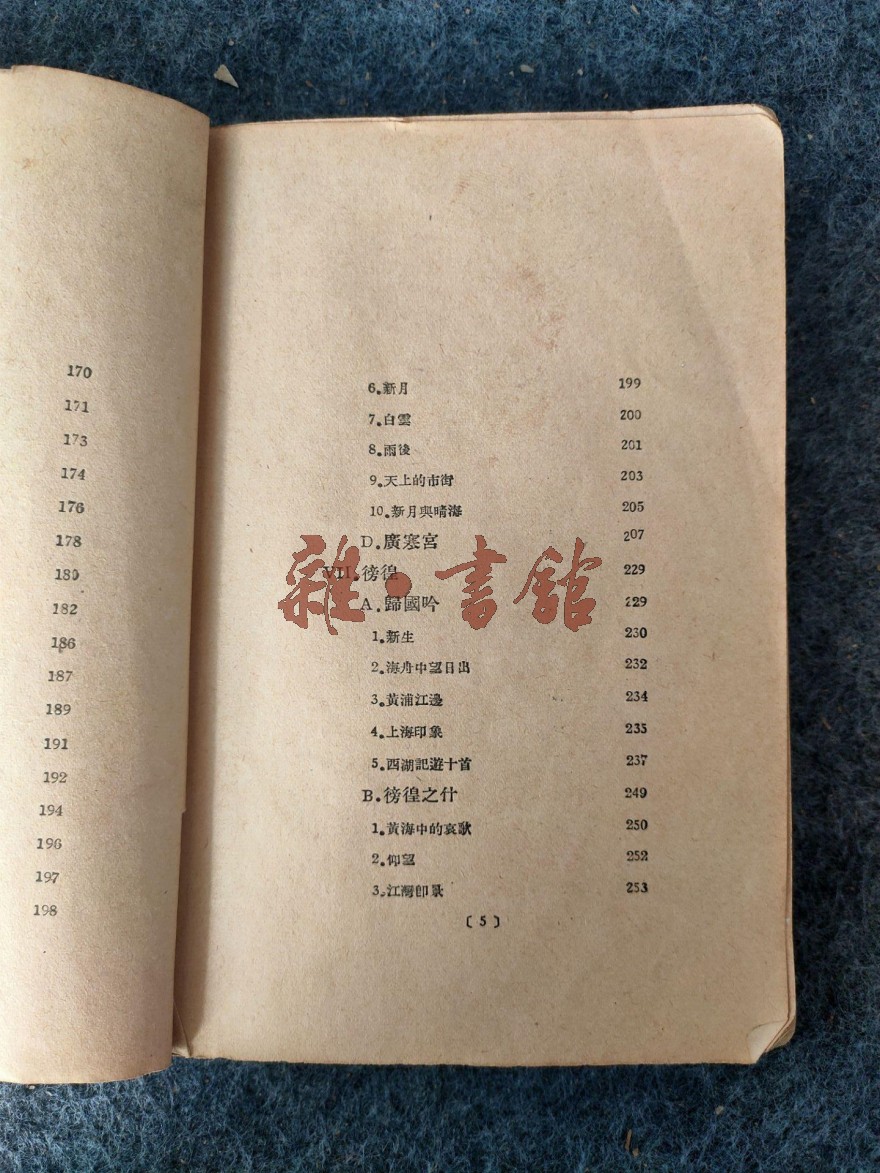 170
171
173
174
176
178
180
182
186
187
189
191
192
194
196
197
198
6.新月 199
7.白雲 200
8.雨後 201
9.天上的市街 203
10.新月與晴海 205
D.廣寒宮 207
VII.徬徨 229
A.歸國吟 229
1.新生 230
2.海舟中望日出 232
3.黃浦江邊 234
4.上海印象 235
5.西湖記遊十首 237
B.徬徨之什 249
1.黃海中的哀歌 250
2.仰望 252
3.江灣卽景 253
〔5〕
雜·書館